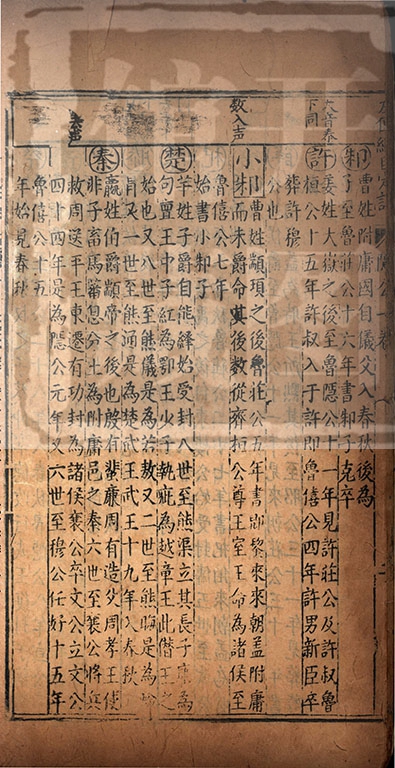 邾
曹姓附庸國自儀父入春秋後為
子至魯莊公十六年書邾子克卒
大音泰
下同
許
姜姓大嶽之後至魯隱公十一年見許莊公及許叔魯
桓公十五年許叔入于許即魯僖公四年許男新臣卒
葬許穆
公也
數入声
小邾
曹姓顓頊之後魯莊公五年書郳黎來來朝蓋附庸
而未爵命其後數從齊桓公尊王室王命為諸侯至
魯僖公七年
始書小邾子
楚
羋姓子爵自熊繹始受封八世至熊渠立其長子康為
句亶王中子紅為鄂王少子執疵為越章王此僭王之
始也又八世至熊儀是為若敖又二世至熊是為蚡
冒又一世至熊通是為楚武王武王十九年入春秋
秦
嬴姓伯爵顓帝之後也殷有蜚廉周有造父周孝王使
非子畜馬蕃息分土為附庸邑之秦六世至襄公將兵
救周送平王東遷有功封為諸侯襄公卒文公立文公
四十四年是為隱公元年又六世至穆公任好十五年
魯僖公十五
年始見春秋